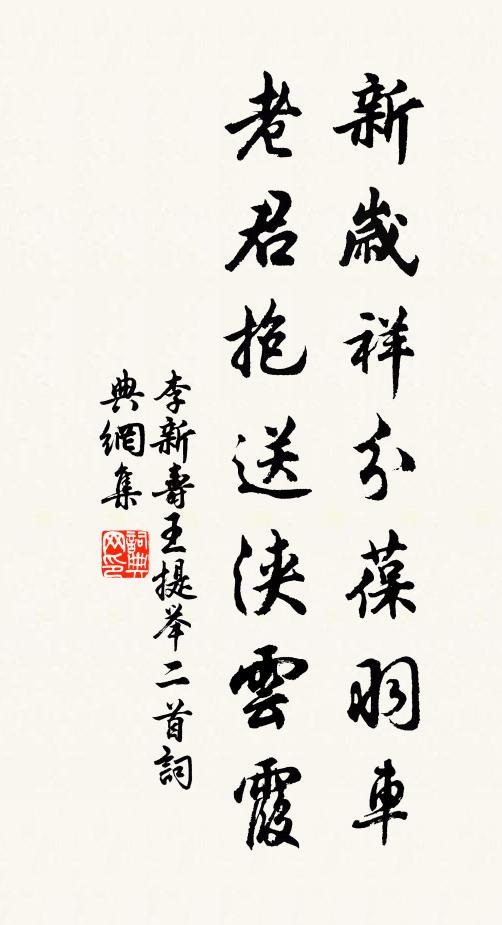 新歲祥分葆羽車
老君抱送浹雲霞
李新壽王提举二首詞
典網集
詞典網印